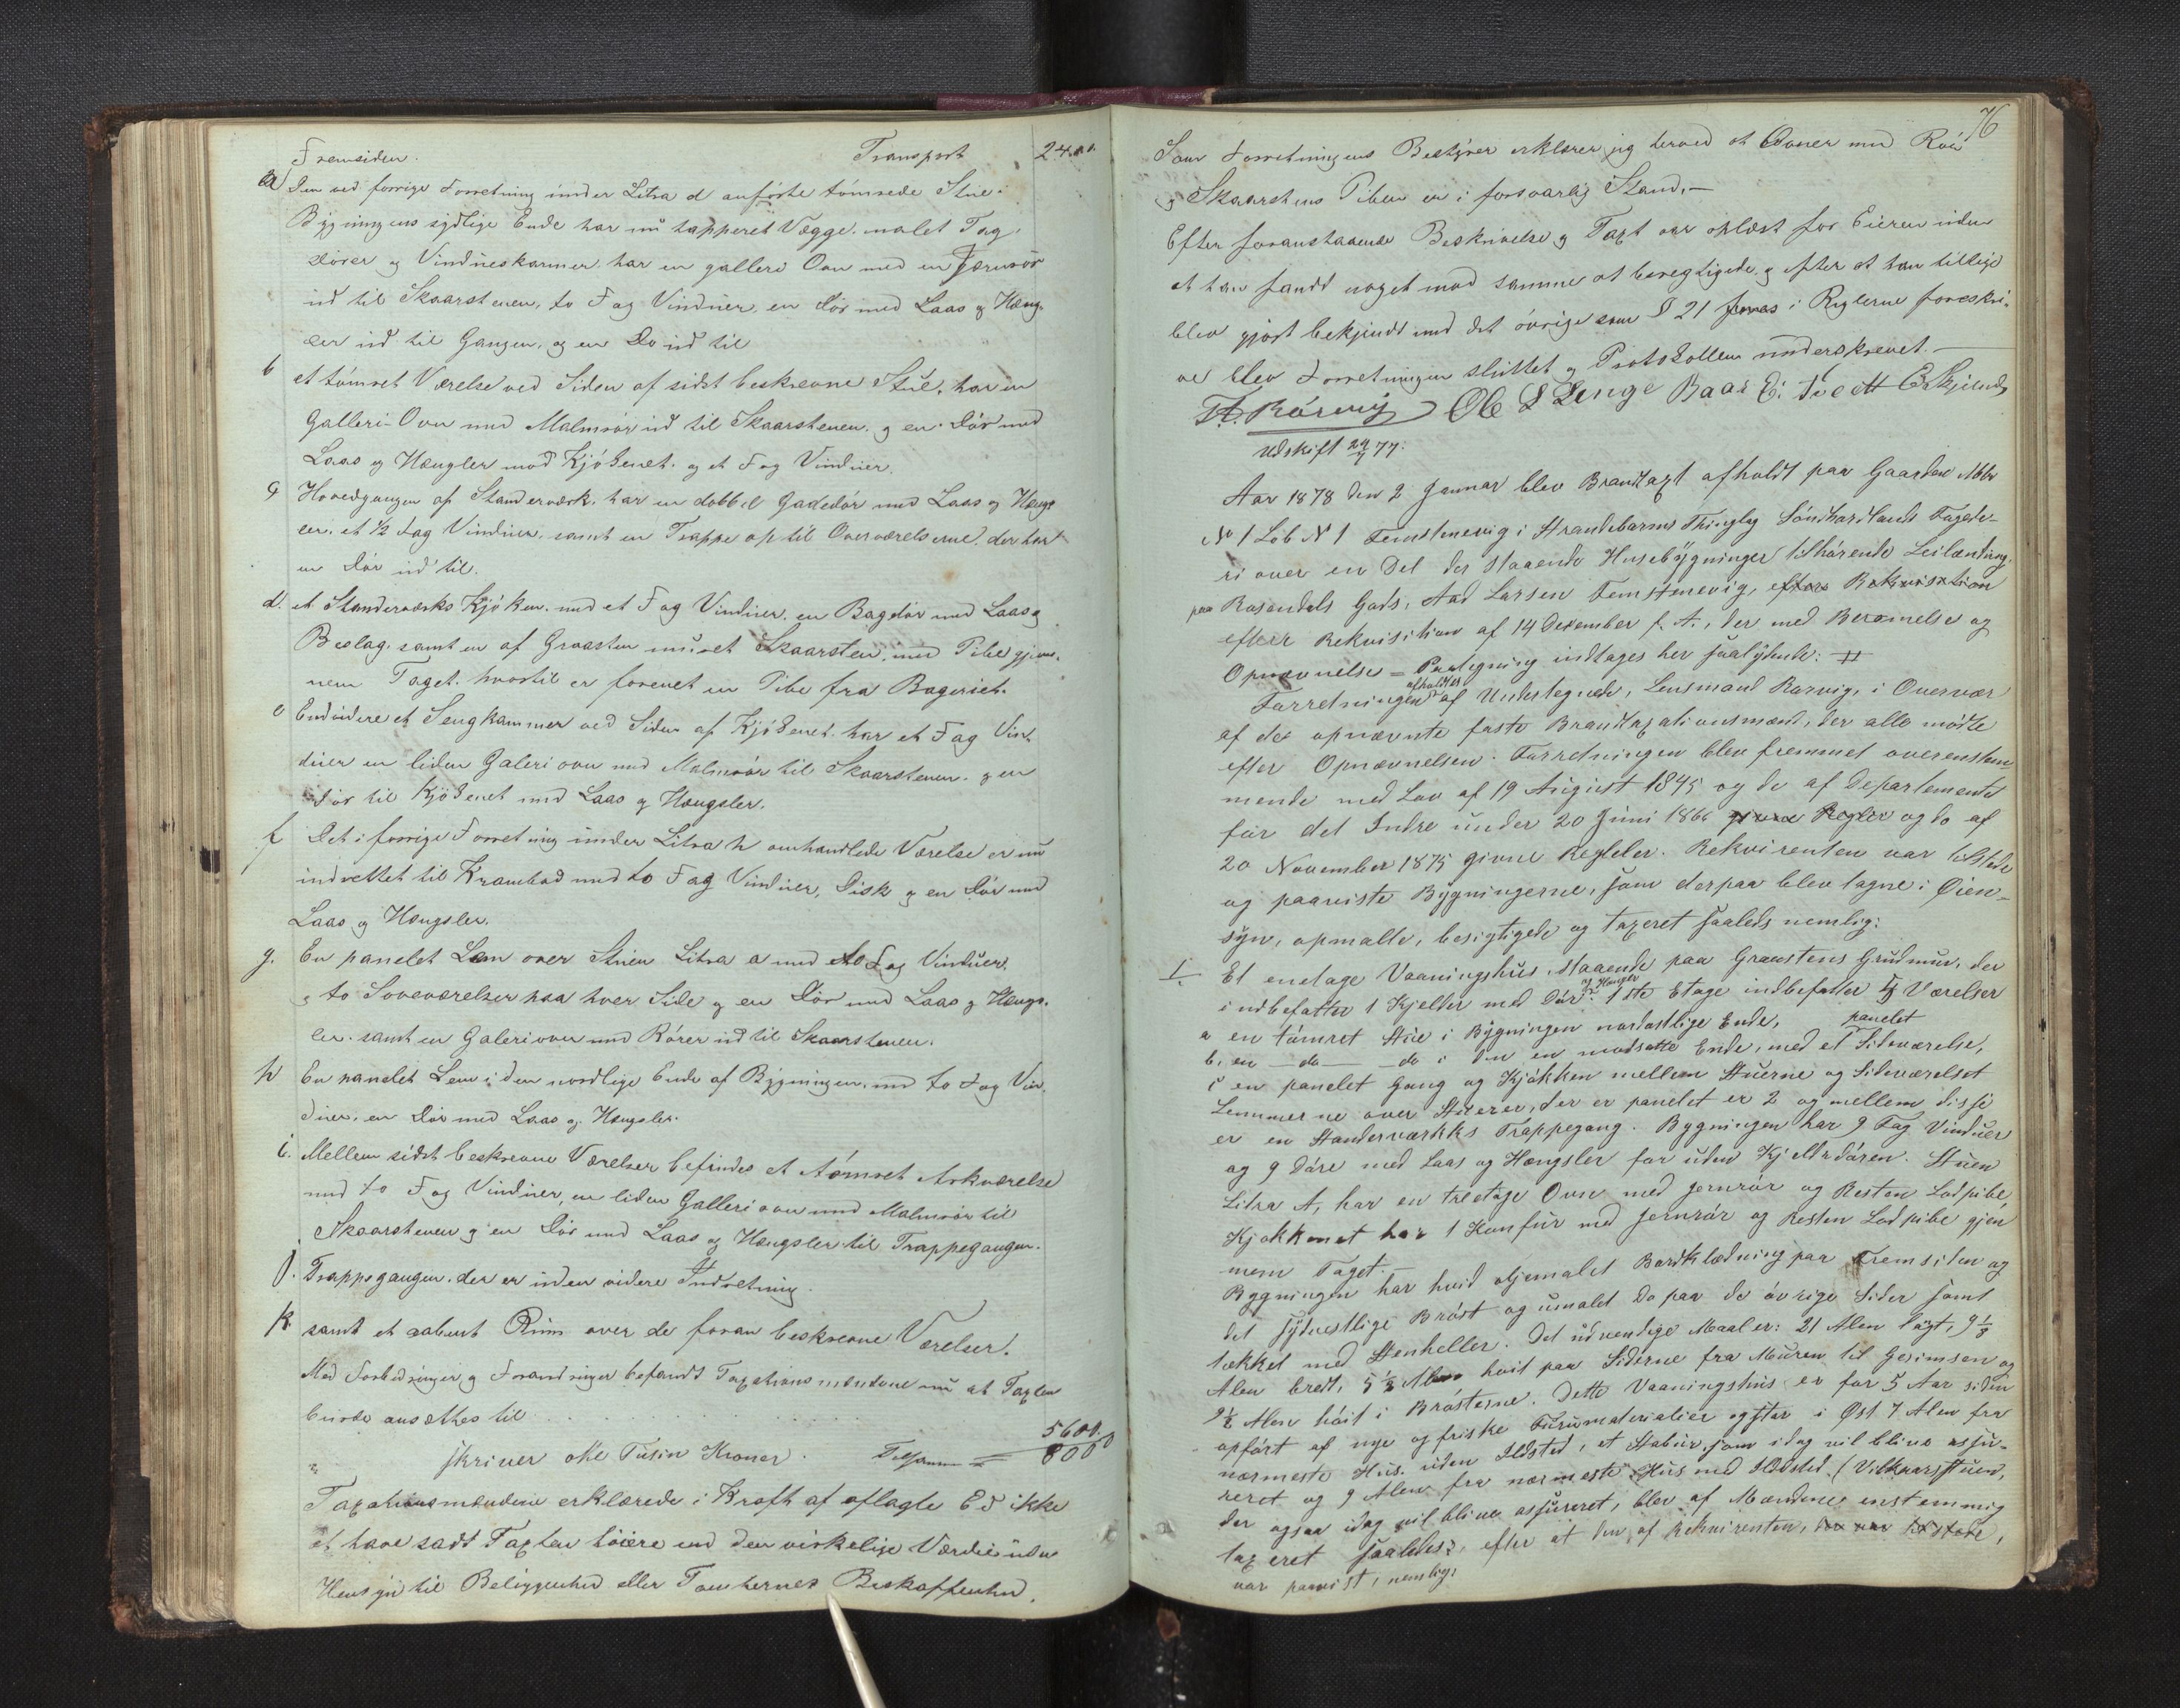 Fremsiden. Transport 2400.
a Den ved forrige Forretning under Litra d anførte tømrede Stue i
Bygningens sydlige Ende har nu tapperet Vægge. malet Tag,
dører og Vindueskarmer. har en galleri Ovn med en Jernrør
ud til Skaarstenen, to Fag Vinduer, en dør med Laas og Hæng-
sler ud til Gangen, og en Do ud til
b et tømret Værelse ved Siden af sidst beskrevne Stue, har en
Galleri-Ovn med Malmrør ud til Skaarstenen. og en Dør med
Laas og Hængler mod Kjøkenet. og et Fag Vinduer.
c Hovedgangen af Standerværk. har en dobbel Gadedør med Laas og Hængs
ler. et 1/2 Fag Vinduer. samt en Trappe op til Overværelserne. der har
en Dør ud til.
d. et Standerværks Kjøken. med et Fag Vinduer. en Bagdør med Laas og
Beslag. samt en af Graasten muret Skaarsten. med Pibe gjen-
nem Taget. hvortil er forenet en Pibe fra Bageriet.
e Endvidere et Sengkammer ved Siden af Kjøkenet. har et Fag Vin-
duer en liden Galeriovn med Malmrør til Skaarstenen. og en
Dør til Kjøkenet med Laas og Hængsler.
f Det i forrige Forretning under Litra h omhandlede Værelse er nu
indrettet til Krambod med to Fag Vinduer, Disk og en Dør med
Laas og Hængsler.
g. En panelet Lem over Stuen Litra a med to Fag Vinduer.
og to Soveværelser paa hver Side og en Dør med Laas og Hængs-
ler. samt en Galeriovn med Rører ud til Skaarstenen.
h En panelet Lem i den nordlige Ende af Bygningen. med to Fag Vin-
duer. en Dør med Laas og Hængsler.
i. Mellem sidst beskrevne Værelser befindes et tømret Arkværelse
med to Fag Vinduer, en liden Galleriovn med Malmrør til
Skaarstenen og en Dør med Laas og Hængsler til Trappegangen.
j. Trappegangen. der er uden videre Indretning.
k. samt et aabent Rum over de foran beskrevne Værelser.
Med Forbedringer og Forandringer befandt Taxationsmændene nu at Taxten
burde ansættes til . . . . . . 5600.
skriver otte Tusin Kroner. Tilsammen = 8000
Taxationsmændene erklærede i Kraft af aflagte Ed ikke
at have sadt Taxten høiere end den virkelige Værdie uden
Hensyn til Beliggenhed eller Tomternes Beskaffenhed.
76
Som Forretningens Bestyrer erklærer jeg herved at Ovner med Rør
og Skaarstens Piben er i forsvarlig Stand.—
Efter foranstaaende Beskrivelse og Taxt var oplæst for Eieren uden
at han fandt noget mod samme at beregtigede. og efter at han tillige
blev gjort bekjendt med det øvrige som § 21 i Reglerne foreskri-
ver blev Forretningen sluttet og Protokollen underskrevet.—
Ole L Linge Baar
Udskift 24/7 77:
Aar 1878 den 2 Januar blev Brandtaxt afholdt paa Gaarden Mtr
No 1 Løb N 1 Femstenevig i Strandebarms Thinglag Søndhordlands Fogde-
ri over en Del der staaende Husebygninger tilhørende Leilænding
paa Rosendals Gods, Aad Larsen Femstenevig, efter Rekvisition
efter Rekvisition af 14 December f. A., der med Berammelse og
Opnævnelse = Paategning indtages her saalydende: #
Forretningen afholdtes af Undertegnede, Lensmand Rørvig, i Overvær
af de opnævnte faste Brandtaxationsmænd, der alle mødte
efter Opnævnelsen. Forretningen blev fremmet overenstem
mende med Lov af 19 August 1845 og de af Departementet
for det Indre under 20 Juni 1866 givne Regler og do af
20 November 1875 givne Regleler. Rekvirenten var tilstede
og paaviste Bygningerne, som derpaa blev tagne i Øien-
syn, opmaalte, besigtigede og taxeret saaleds nemlig:
1. Et enetage Vaaningshus staaende paa Graastens Grundmur, der
indbefatter 1 Kjelder med Dør og Hængsler. 1ste Etage indbefatter 5 Værelser
a en tømret Stue i Bygningen nordostlige Ende,
b. en — do — do i den en modsatte Ende, med et panelet Sideværelse,
i en panelet Gang og Kjøkken mellem Stuerne og Sideværelset
Lemmerne over Stuerer, der er panelet er 2 og mellem disse
er en Standerværkks Trappegang. Bygningen har 9 Fag Vinduer
og 9 Døre med Laas og Hængsler for uden Kjelderdøren. Stuen
Litra A, har en treetage Ovn med Jernrør og Resten Lodpibe,
Kjøkkenet har 1 Komfur med Jernrør og Resten Lodpibe gjen
nem Taget.—
Bygningen har hvid oljemalet Bordklædning paa Fremsiden og
det sydvestlige Brøst og umalet Do paa de øvrige Sider samt
tækket med Stenheller. Det udvendige Maal er: 21 Alen lagt, 9 1/2
Alen bredt, 5 1/2 Alen høit paa Siderne fra Muren til Gesimsen og
9 1/2 Alen høit i Brøsterne. Dette Vaaningshus er for 5 Aar siden
opført af nye og friske Furumaterialier og staar i Øst 7 Alen fra
nærmeste Hus. uden Ildsted, et Stabur, som idag vil blive assu-
reret og 9 Alen fra nærmeste Hus med Ildsted. (Vilkaarsstuen,
der ogsaa idag vil blive assureret, blev af Mændene enstemmig
taxeret saaledes, efter at den af Rekvirenten, der var tilstede,
var paavist, nemlig: